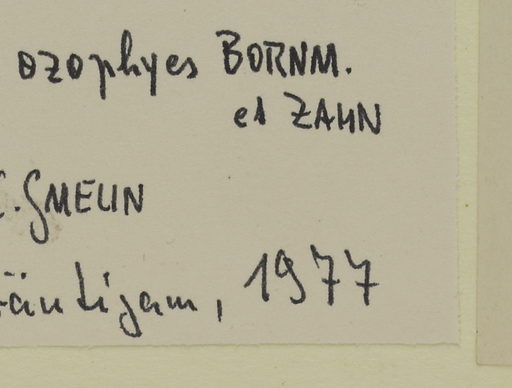 ozophyes BORNM.
et ZAHN
C. GMELIN
räutigam, 1977